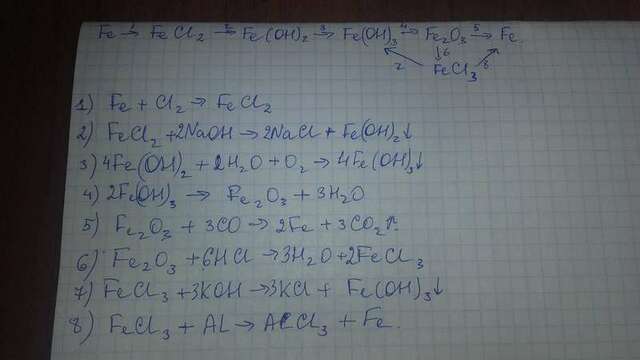 Fe →¹ FeCl₂ →² Fe(OH)₂ →³ Fe(OH)₃ →⁴ Fe₂O₃ →⁵ Fe
↓6
7 FeCl₃ 8
1) Fe + Cl₂ → FeCl₂
2) FeCl₂ + 2NaOH → 2NaCl + Fe(OH)₂↓
3) 4Fe(OH)₂ + 2H₂O + O₂ → 4Fe(OH)₃↓
4) 2Fe(OH)₃ → Fe₂O₃ + 3H₂O
5) Fe₂O₃ + 3CO → 2Fe + 3CO₂↑
6) Fe₂O₃ + 6HCl → 3H₂O + 2FeCl₃
7) FeCl₃ + 3KOH → 3KCl + Fe(OH)₃↓
8) FeCl₃ + AL → ALCl₃ + Fe.